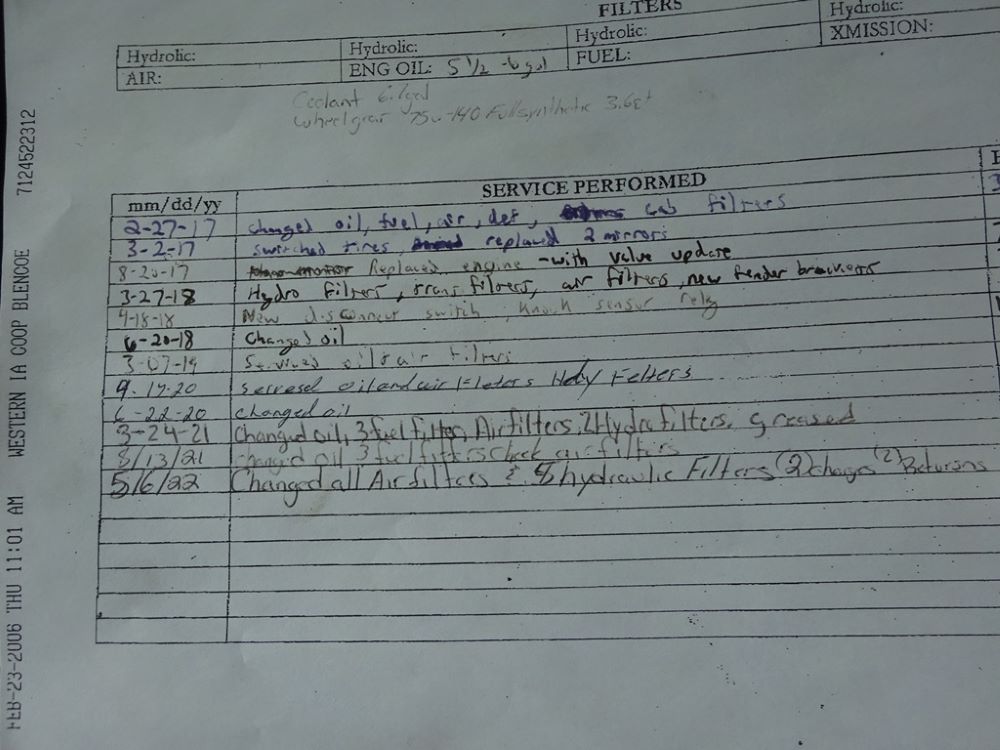 FILTERS
Hydrolic: Hydrolic: Hydrolic: Hydrolic:
AIR: ENG OIL: 5 1/2 -6 gal FUEL: XMISSION:
Coolant 6.7gal
wheel gear 75w-140 Full synthetic 3.6
mm/dd/yy SERVICE PERFORMED
2-27-17 changed oil, fuel, air, def, cab filters
3-2-17 switched tires replaced 2 mirrors
8-20-17 Replaced engine -with valve update
3-27-18 Hydro filters, trans filters, air filters, new fender
4-18-18 New disconnect switch, knock sensor
6-20-18 Changed oil
3-07-19 oil & air filters
9-17-20 oil and air
6-22-20 changed oil
3-24-21 Changed oil, 3 fuel Air filters, 2 Hydro filters, greased
8/13/21 changed oil 3 fuel filters check air filters
5/6/22 Changed all Air hydraulic Filters (2) (2) Returns
FEB-23-2006 THU 11:01 AM WESTERN IA COOP BLENCOE 7124522312